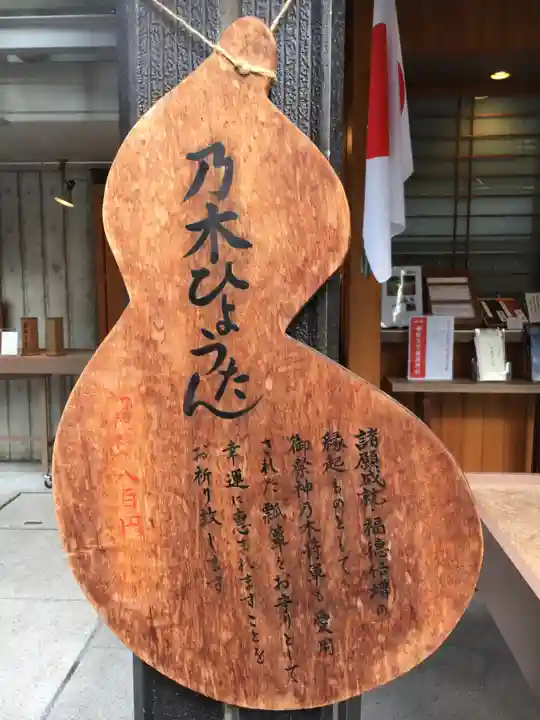 乃木ひょうたん
諸願成就 福徳倍増の
縁起ものとして
御祭神乃木将軍も愛用
された瓢箪をお守りとして
幸運に恵まれますことを
お祈り致します
八百円